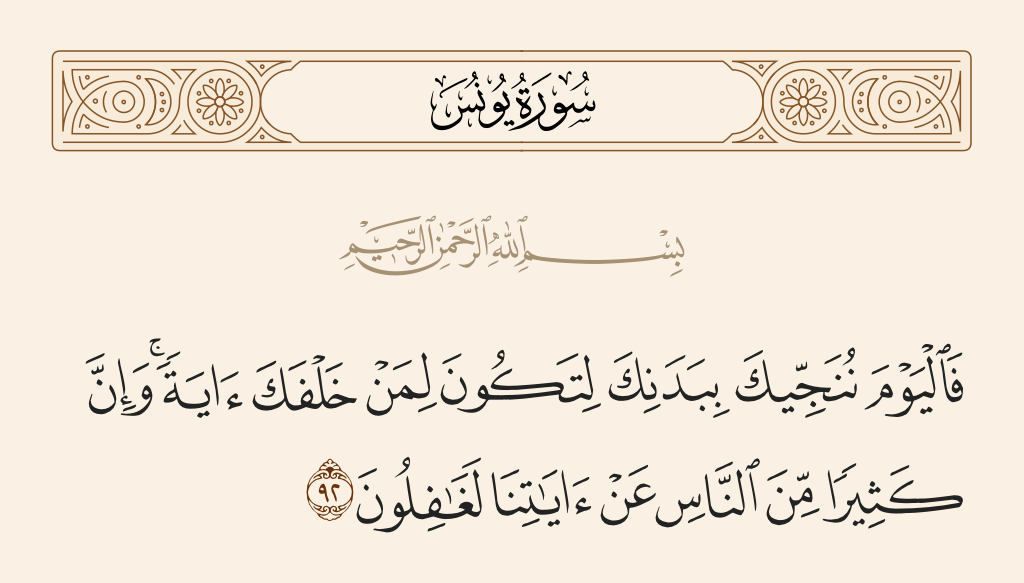 سُورَةُ يُونُسَ
بِسْمِ ٱللَّهِ ٱلرَّحْمَٰنِ ٱلرَّحِيمِ
فَٱلْيَوْمَ نُنَجِّيكَ بِبَدَنِكَ لِتَكُونَ لِمَنْ خَلْفَكَ ءَايَةً ۚ وَإِنَّ
كَثِيرًا مِّنَ ٱلنَّاسِ عَنْ ءَايَٰتِنَا لَغَٰفِلُونَ ٩٢